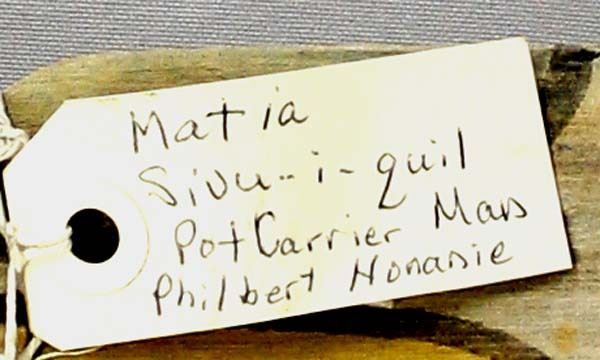 Matia
Sivu-i-quil
Pot Carrier Man
Philbert Honanie